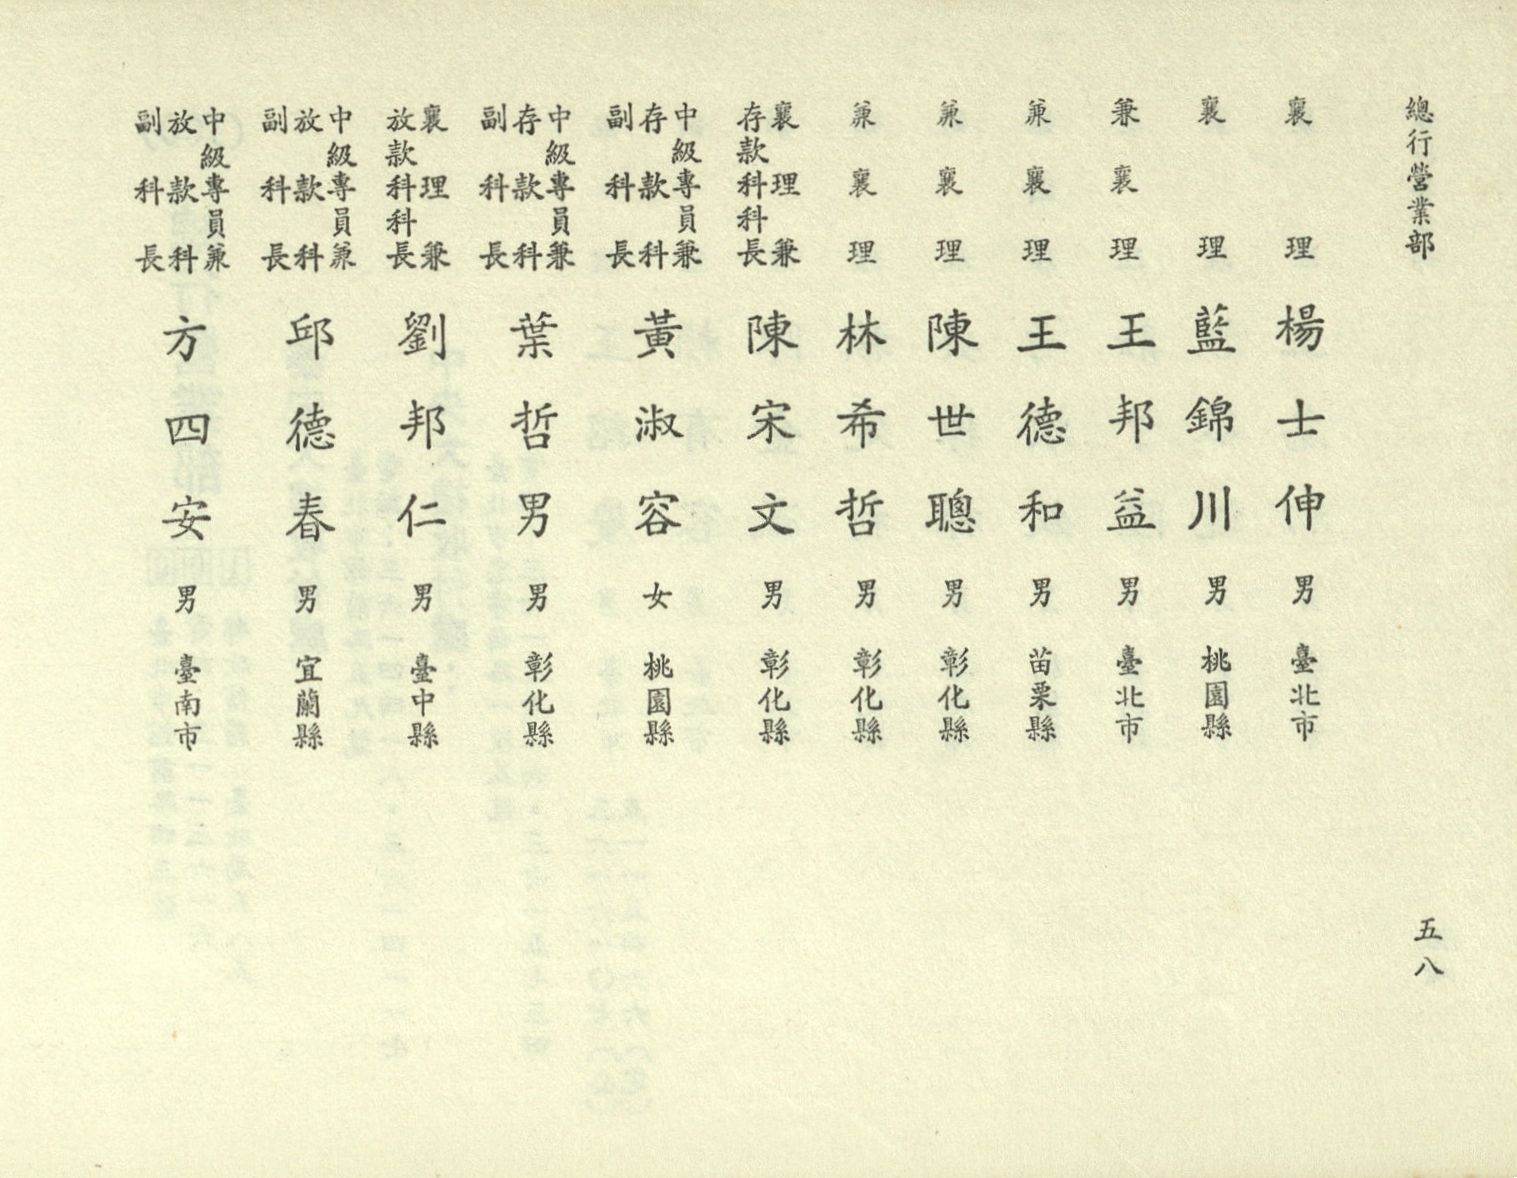 總行營業部
五八
襄理 楊士伸 男 臺北市
襄理 藍錦川 男 桃園縣
兼襄理 王邦益 男 臺北市
兼襄理 王德和 男 苗栗縣
兼襄理 陳世聰 男 彰化縣
兼襄理 林希哲 男 彰化縣
襄理兼
存款科科長 陳宋文 男 彰化縣
中級專員兼
存款科
副科長 黃淑容 女 桃園縣
中級專員兼
存款科
副科長 葉哲男 男 彰化縣
襄理兼
放款科科長 劉邦仁 男 臺中縣
中級專員兼
放款科
副科長 邱德春 男 宜蘭縣
中級專員兼
放款科
副科長 方四安 男 臺南市